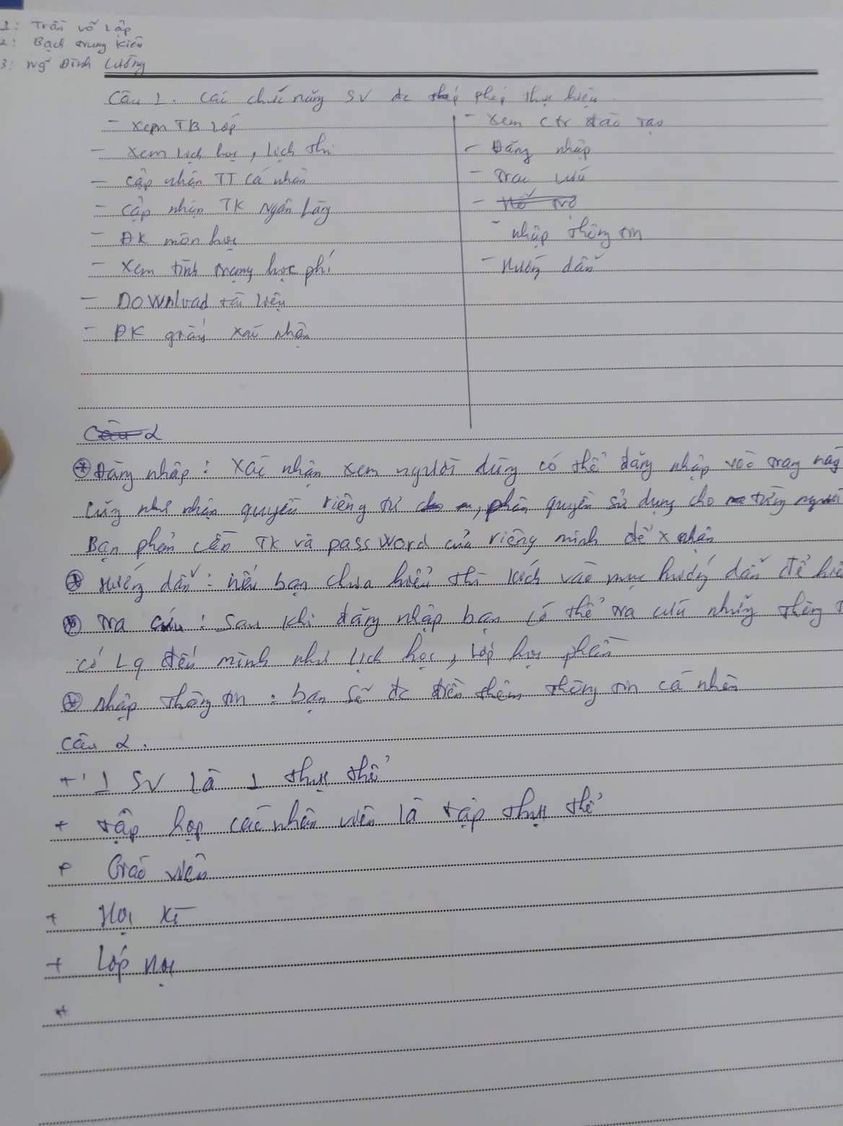 1: Trần võ Lập
2: Bạch trung kiên
3: Ng~ Đình Lường
Câu 1. Các chức năng SV đc phép thực hiện
- Xem TB lớp
- Xem lịch học, lịch thi
- cập nhận TT cá nhân
- cập nhận TK ngân hàng
- ĐK môn học
- Xem tình trạng học phí
- Download tài liệu
- ĐK giấy xác nhận
- Xem ctr đào tạo
- Đăng nhập
- Tra cứu
- Hỗ trợ
- nhập thông tin
- Hướng dẫn
Câu 2
* Đăng nhập: Xác nhận xem người dùng có thể đăng nhập vào trang này
cũng như nhận quyền riêng tư, phân quyền sử dụng cho từng người
Bạn phải cần TK và passWord của riêng mình để X nhận
* Hướng dẫn: nếu bạn chưa hiểu thì kích vào mục hướng dẫn để
* Tra cứu: Sau khi đăng nhập bạn có thể tra cứu những thông
có Lq đến mình như lịch học, lớp học phần
* Nhập thông tin: bạn sẽ đc điền thêm thông tin cá nhân
Câu 2.
+ 1 SV là 1 thực thể
+ tập hợp các nhân viên là tập thực thể
+ Giáo viên
+ Học kì
+ Lớp học
+